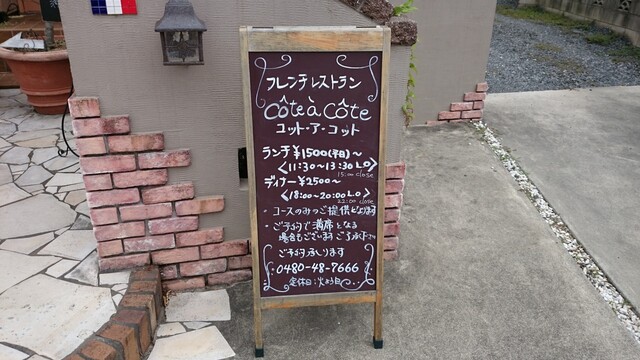 フレンチレストラン
Côte à Côte
コット・ア・コット
ランチ ¥1500(平日)~
<11:30~13:30 L.O>
15:00 close
ディナー ¥2500~
<18:00~20:00 L.O>
22:00 close
・コースのみのご提供となります
・ご予約で満席となる
場合もございます ご了承下さい
ご予約承ります
0480-48-7666
定休日:火曜日